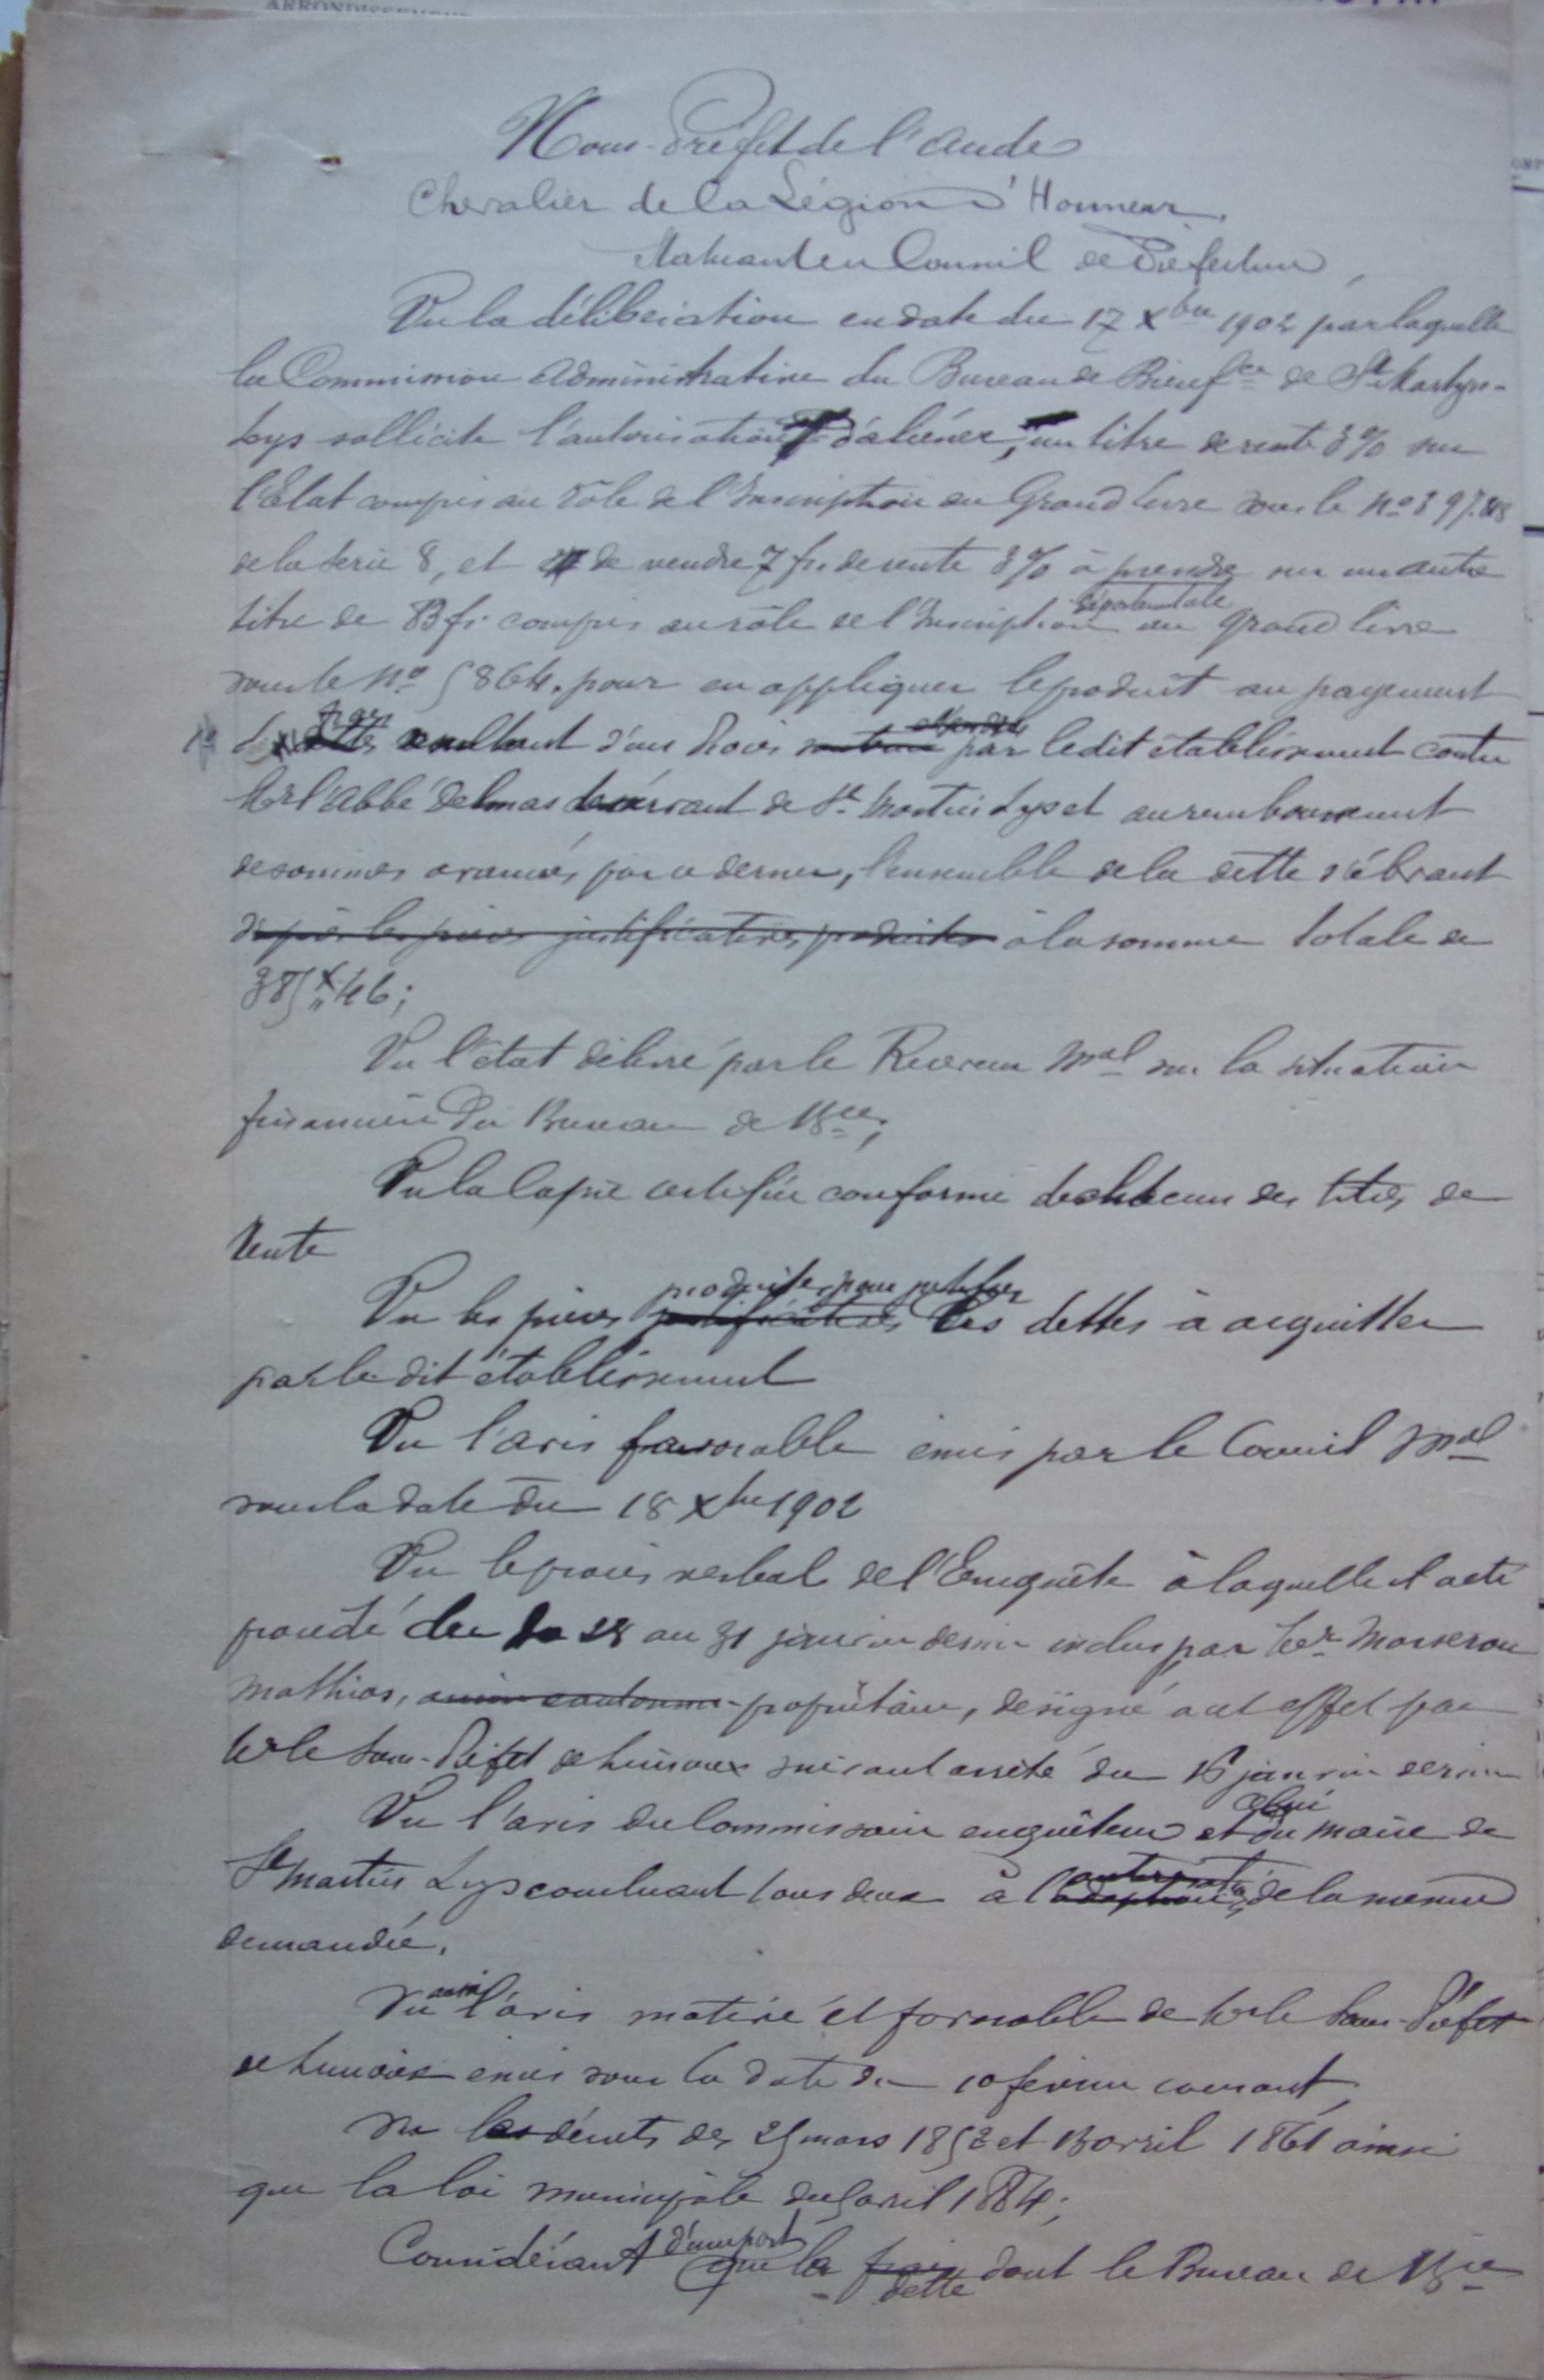 ARRONDISSEMENT
Nous Préfet de l'Aude
Chevalier de la Légion d'Honneur
Statuant en Conseil de Préfecture,
Vu la délibération en date du 17 Xbre 1902 par laquelle
la Commission administrative du Bureau de Bienfce de St Martyn-
Lys sollicite l'autorisation d'aliéner, un titre de rente 3% sur
l'Etat compris au rôle de l'Inscription au Grand Livre sous le No
de la série 8, et de vendre 7 fr. de rente 3% à prendre sur un autre
titre de 83 fr. compris au rôle de l'Inscription départementale au grand livre
sous le No 5864. pour en appliquer le produit au payement
frais résultant d'un procès par le dit établissement contre
Mr l'Abbé Delmas desservant de St Martin Lys et au remboursement
de sommes avancées par ce dernier, l'ensemble de la dette s'élevant
d'après les pièces justificatives produites à la somme totale de
385f,46;
Vu l'état délivré par le Receveur Mal sur la situation
financière du Bureau de Bce;
Vu la Copie certifiée conforme de chacun des titres de
rente
Vu les pièces justificatives produites pour justifier les dettes à acquitter
par le dit établissement
Vu l'avis favorable émis par le Conseil Mal
sous la date du 18 Xbre 1902
Vu le procès verbal de l'Enquête à laquelle il a été
procédé du au 31 janvier dernier inclus par Mr
Mathias, propriétaire, désigné à cet effet par
Mr le Sous-Préfet de Limoux suivant arrêté du 16 janvier dernier
Vu l'avis du Commissaire enquêteur et celui du Maire de
St Martin Lys concluant tous deux à l'adoption autorisation de la mesure
demandée.
Vu aussi l'avis motivé et favorable de Mr le Sous-Préfet
de Limoux émis sous la date du 10 février courant,
Vu les décrets des 25 mars 1852 et 13 avril 1861 ainsi
que la loi municipale du 5 avril 1884;
Considérant d'une part que la frais dette dont le Bureau de Bce